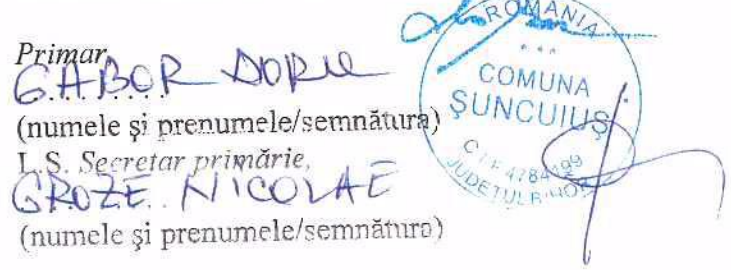 Primar,
GABOR DORU
(numele şi prenumele/semnătura)
L.S. Secretar primărie,
GROZE NICOLAE
(numele şi prenumele/semnătura)
ROMANIA
***
COMUNA
ŞUNCUIUŞ
C.I.F. 4784199
JUDEŢUL BIHOR